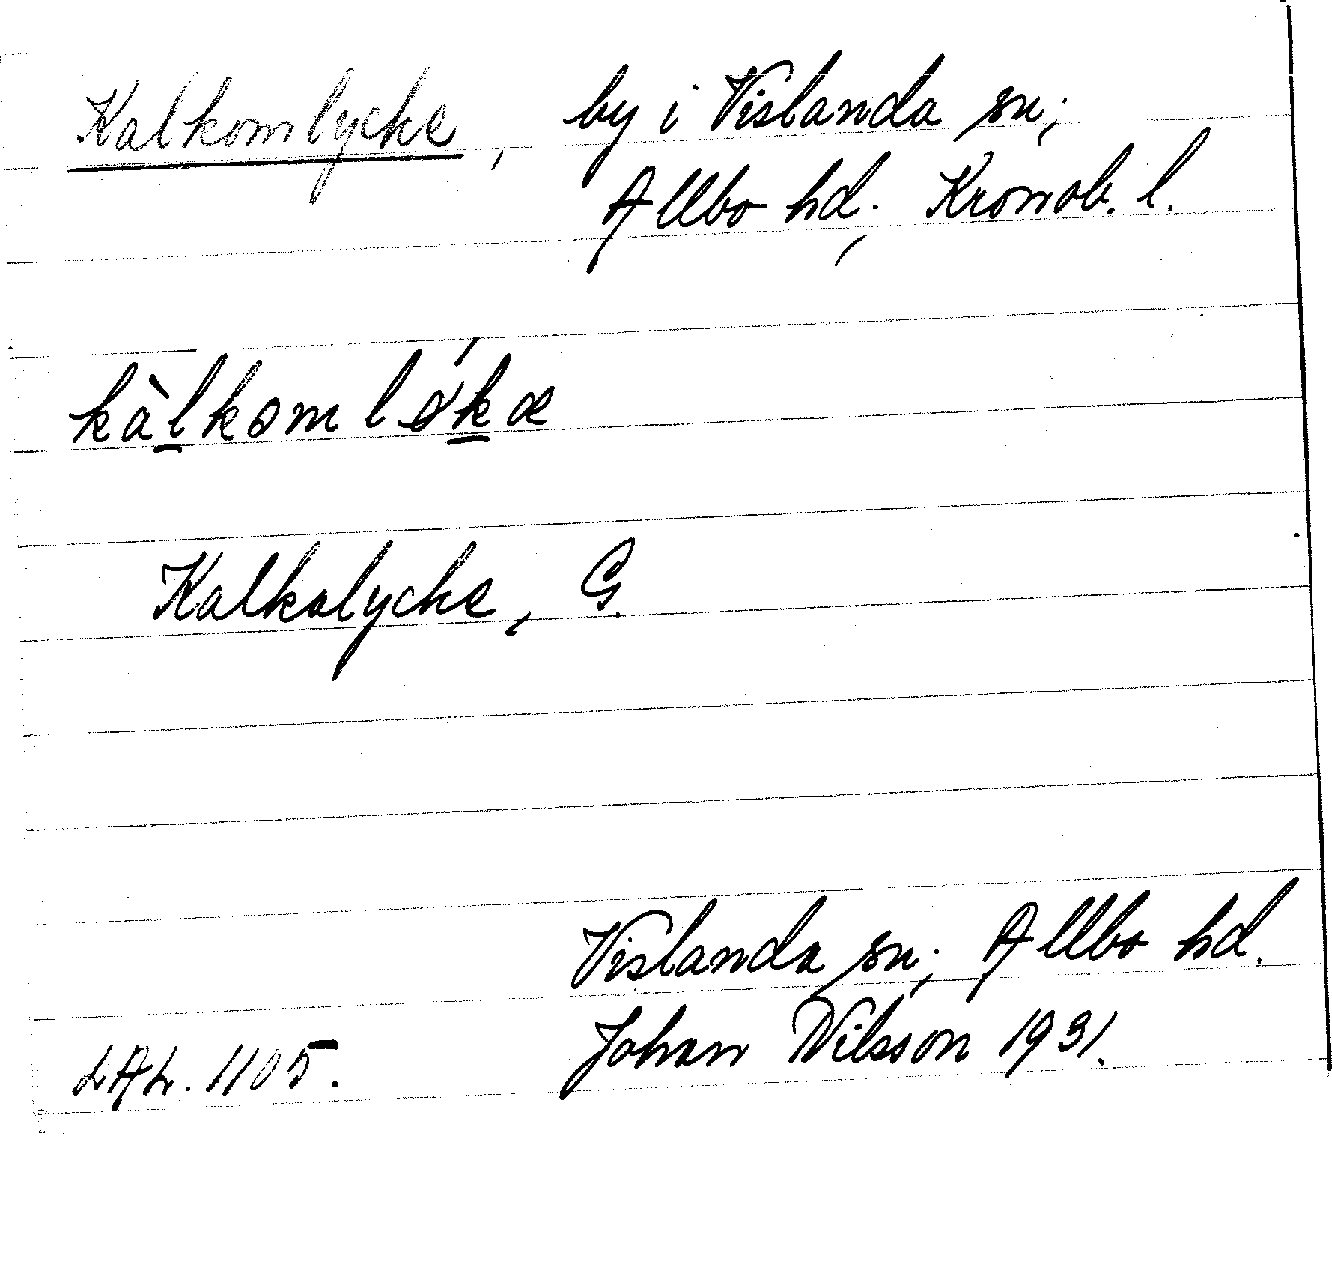 Kalkomlycke, by i Vislanda sn;
Allbo hd., Kronob. l.
kàl̲komløḱ̲æ
Kalkalycke, G.
Vislanda sn., Allbo hd.
LAL. 1105. Johan Nilsson 1931.